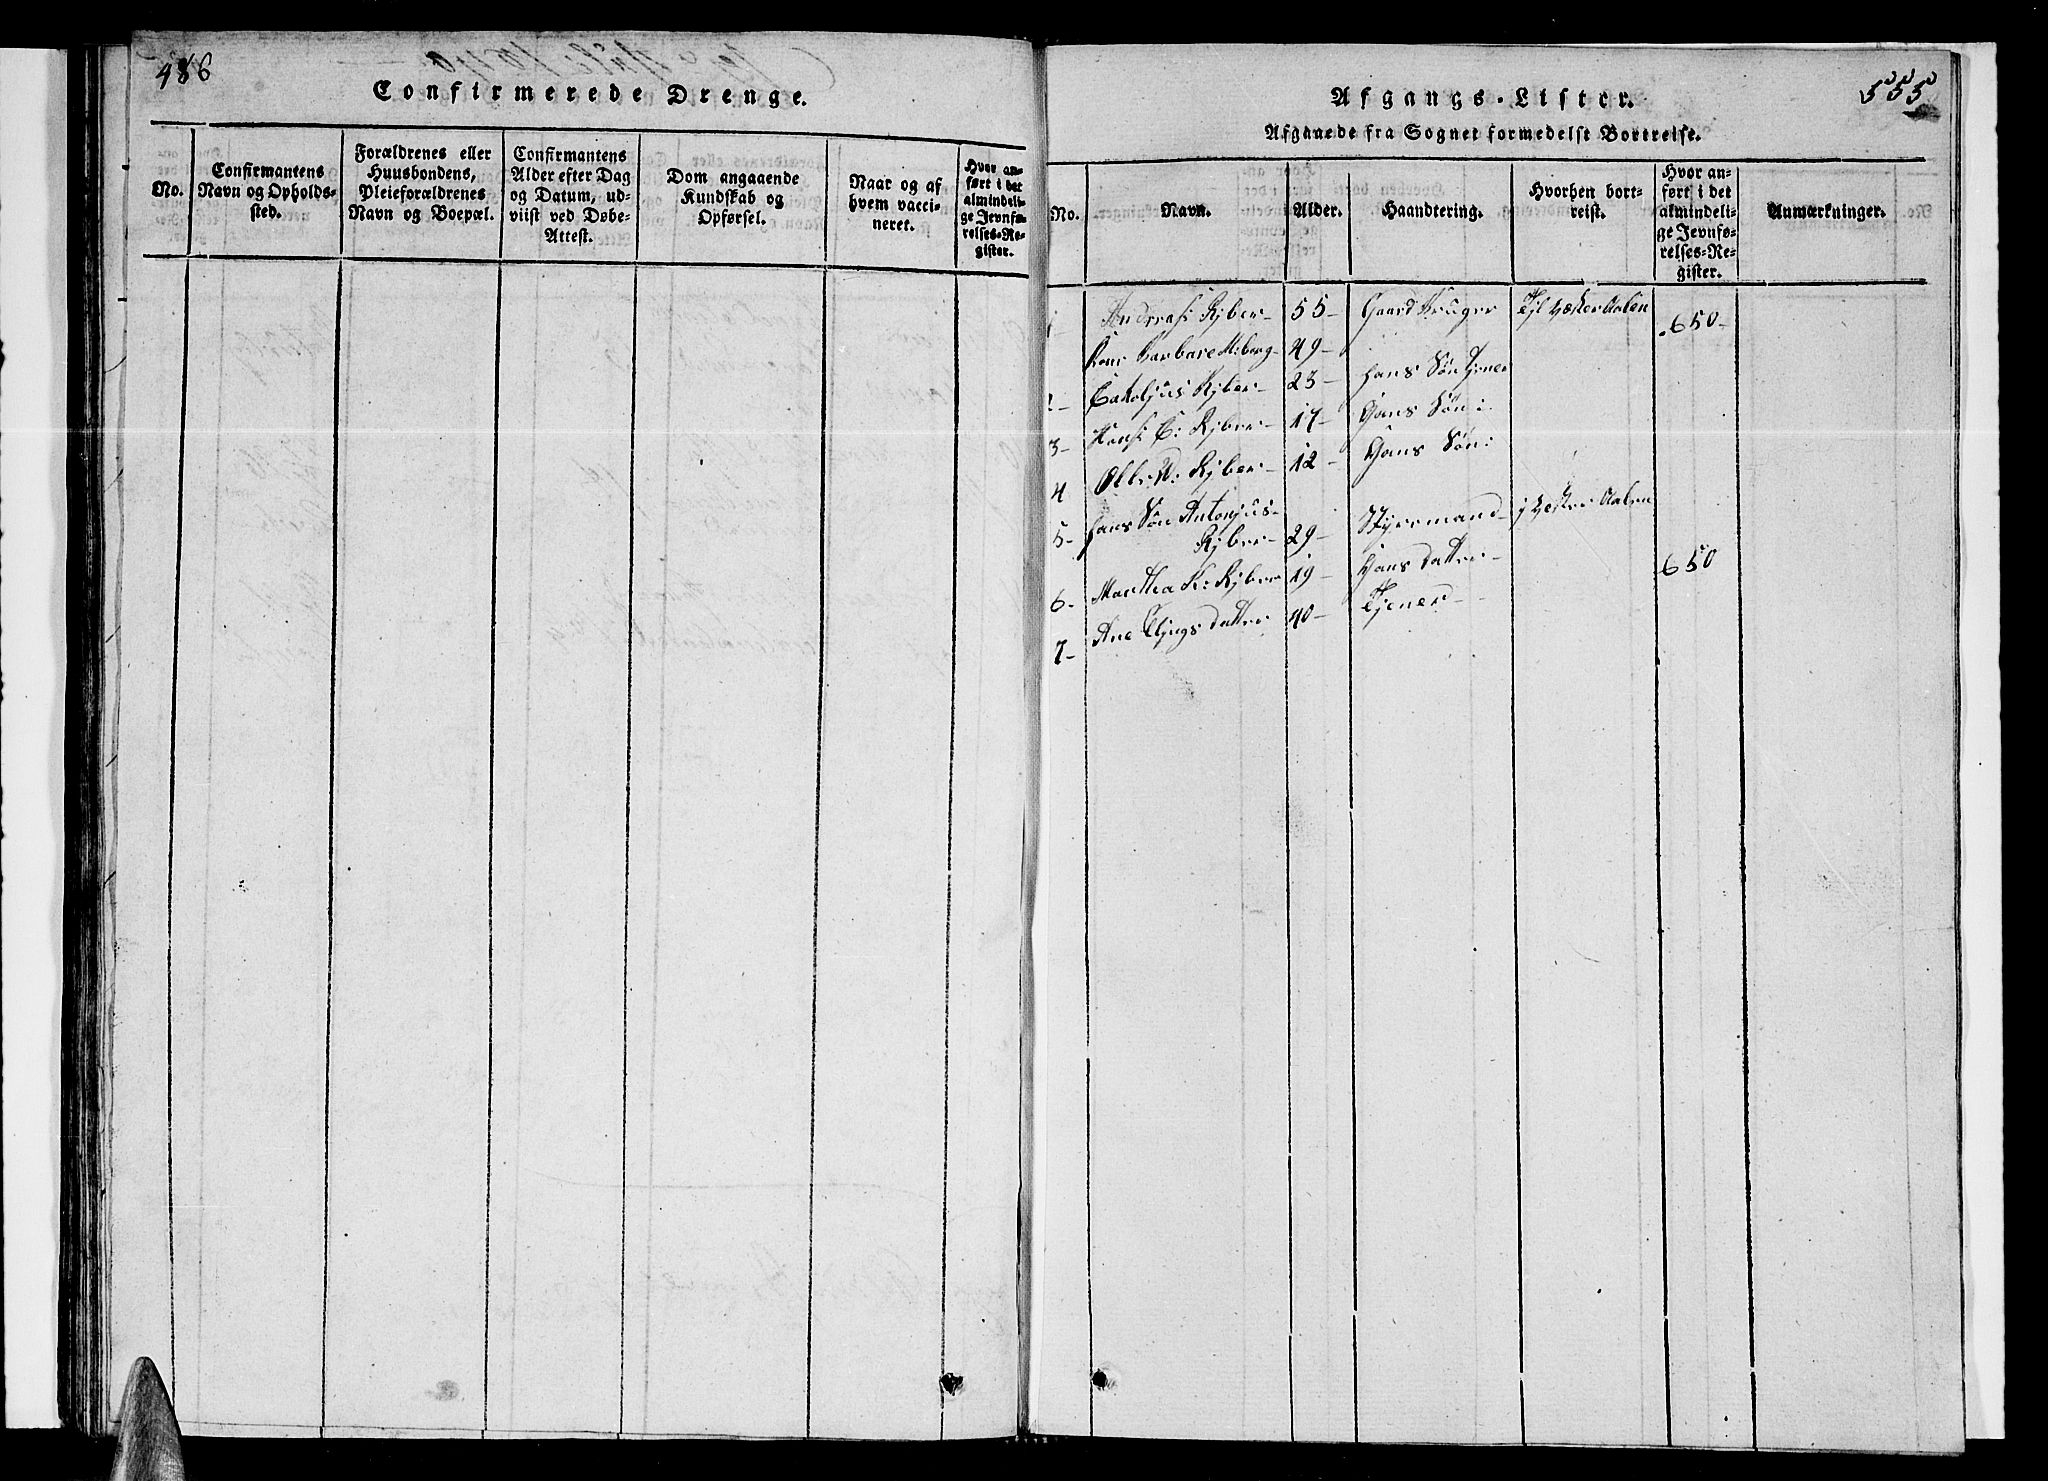 486
Confirmerede Drenge.
No.
Confirmantens
Navn og Opholds-
sted.
Forældrenes eller
Huusbondens,
Pleieforældrenes
Navn og Boepæl.
Confirmantens
Alder efter Dag
og Datum, ud-
viist ved Døbe-
Attest.
Dom angaaende
Kundskab og
Opførsel.
Naar og af
hvem vacci-
neret.
Hvor an-
ført i det
almindeli-
ge Jevnfø-
relses-Re-
gister.
555
Afgangs-Lister.
Afgaaede fra Sognet formedelst Bortreise.
No.
Navn.
Alder.
Haandtering.
Hvorhen bort-
reist.
Hvor an-
ført i det
almindeli-
ge Jevnfø-
relses-Re-
gister.
Anmærkninger.
1- Andreas Rjber- 55- Gaard Bruger Til Vester Aalen 650-
Kone Barbare M:berg- 49-
2- Rjber- 23- Hans Søn Tjener
3- Hans E: Rjber- 17- Hans Søn:
4 Rjber- 12- Hans Søn:
5- Hans Søn Antonjus-
Rjber- 29- Styrmand- j Vester Aalen
6- Martha K: Rjber 19- Hans datter- 650
7- Ane datter 40- Tjener-